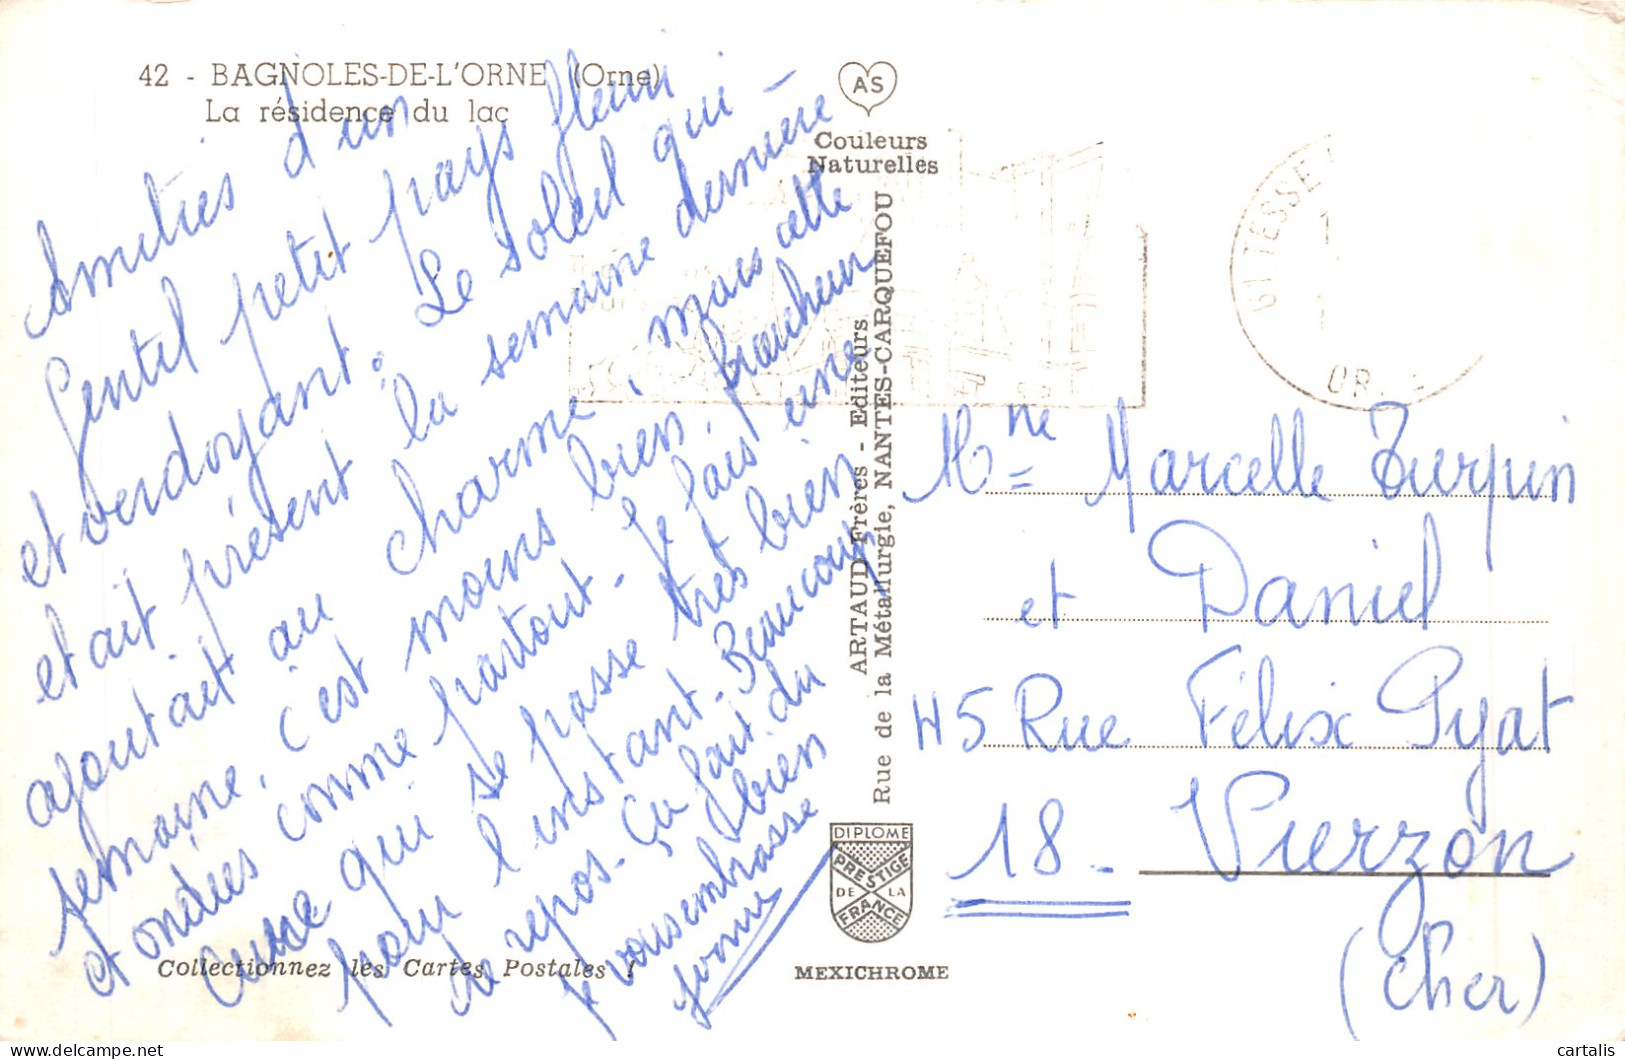 42 - BAGNOLES-DE-L'ORNE (Orne)
La résidence du lac
AS
Couleurs
Naturelles
Amitiés d'un
Gentil petit pays fleuri
et verdoyant. Le soleil qui
était présent la semaine dernière
ajoutait au charme, mais cette
semaine, c'est moins bien, fraicheur
et ondées comme partout - Je fais une
cure qui se passe très bien
pour l'instant - Beaucoup
de repos - Ça fait du bien
Je vous embrasse
Yvonne
ARTAUD Frères - Editeurs
Rue de la Métallurgie, NANTES-CARQUEFOU
61 TESSE
OR
Mme Marcelle Turpin
et Daniel
45 Rue Félix Pyat
18 - Vierzon
(Cher)
DIPLOME
PRESTIGE
DE LA
FRANCE
Collectionnez les Cartes Postales !
MEXICHROME
cartalis